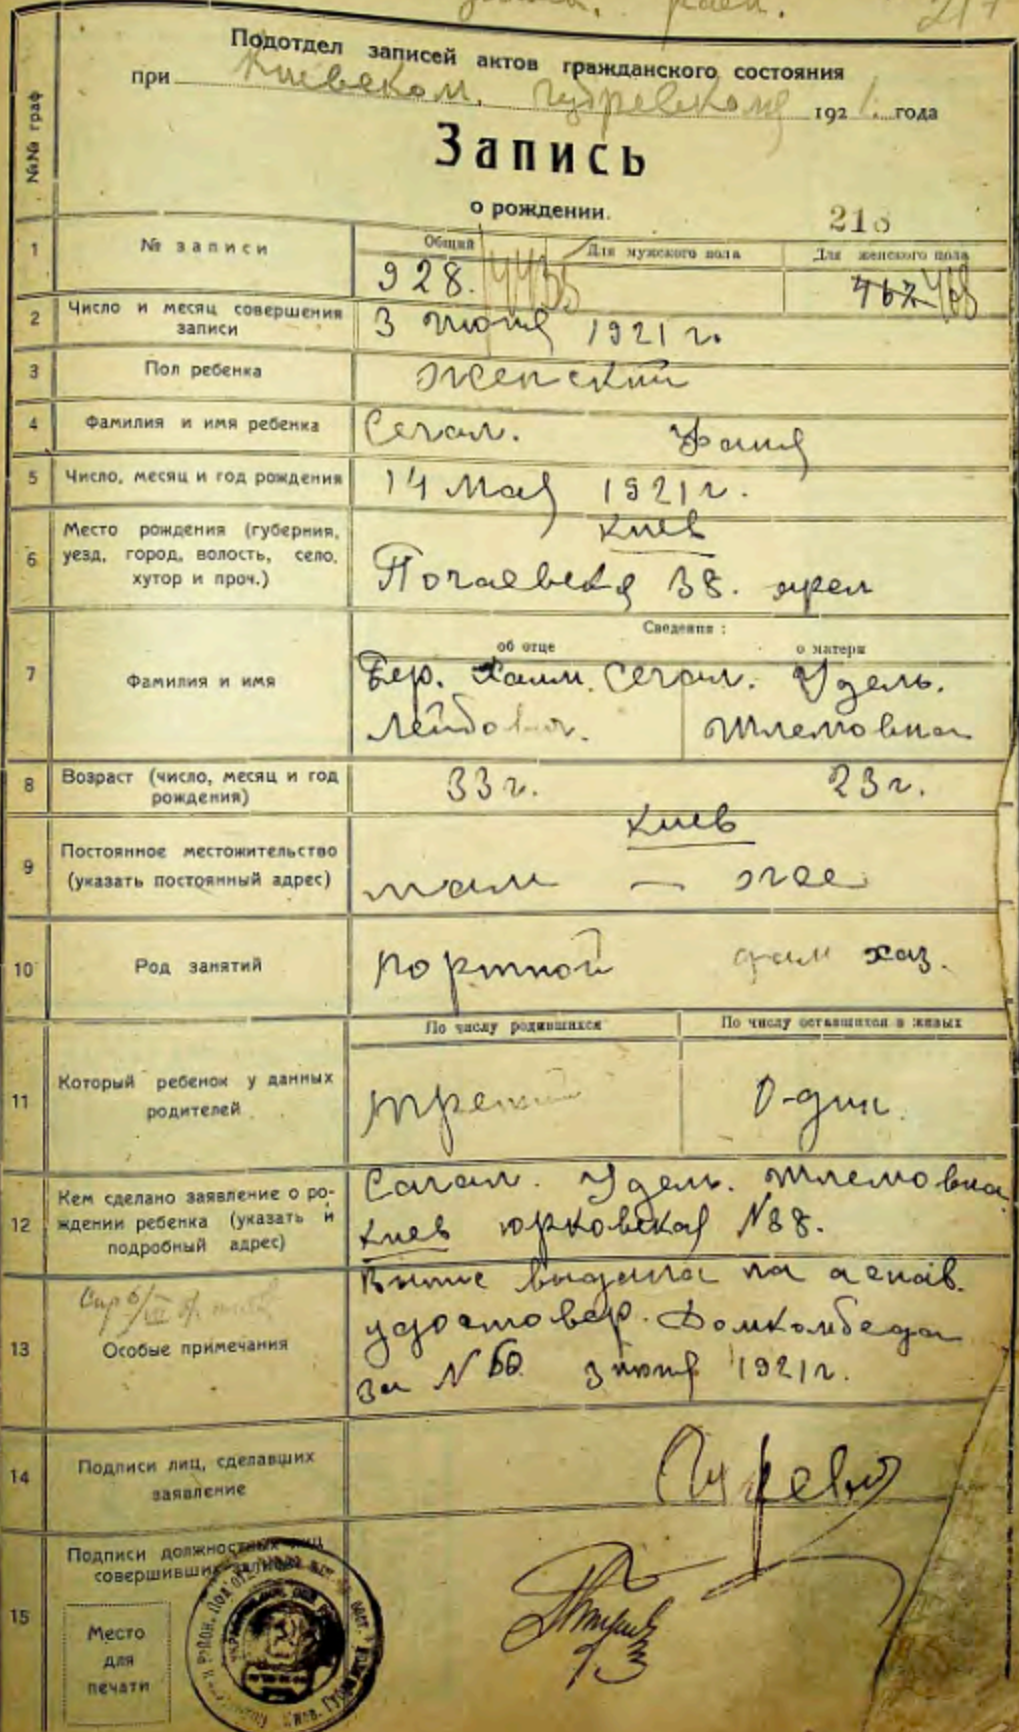 217
Подотдел записей актов гражданского состояния
при Киевском. губревкоме 1921. года
№№ граф
Запись
о рождении.
218
1 № записи Общий Для мужского пола Для женского пола
928. 4435 467 468
2 Число и месяц совершения записи
3 июня 1921 г.
3 Пол ребенка женский
4 Фамилия и имя ребенка Сегал. Фаня
5 Число, месяц и год рождения 14 Мая 1921 г.
6 Место рождения (губерния, уезд, город, волость, село, хутор и проч.)
Киев
Почаевская 38.
Сведения:
об отце о матери
7 Фамилия и имя
Бер. Хаим. Сегал. Удель.
Лейбович. Шлемовна
8 Возраст (число, месяц и год рождения) 33 г. 23 г.
9 Постоянное местожительство (указать постоянный адрес)
Киев
там — же
10 Род занятий портной дам хаз.
По числу родившихся По числу оставшихся в живых
11 Который ребенок у данных родителей
третий О-дин.
12 Кем сделано заявление о рождении ребенка (указать и подробный адрес)
Сагал. Удель. Шлемовна
Киев Юрковская №38.
13 Особые примечания
выдана на аснав.
удостовер. Домкомбеда
за № 60 3 июня 1921 г.
14 Подписи лиц, сделавших заявление
15 Подписи должностных лиц совершивших
Место
для
печати